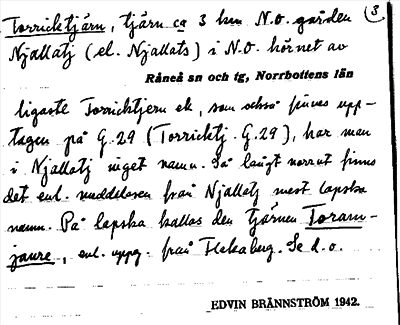 3
Torricktjärn, tjärn ca 3 km N.O. gården
Njallatj (el. Njallats) i N.O. hörnet av
Råneå sn och tg, Norrbottens län
ligaste Torricktjern ek, som också finnes upp-
tagen på G.29 (Torricktj. G.29), har man
i Njallatj inget namn. Så långt norrut finns
det enl. meddelaren från Njallatj mest lapska
namn. På lapska kallas den tjärnen Toram-
jaure, enl. uppg. från Flakaberg. Se d.o.
EDVIN BRÄNNSTRÖM 1942.